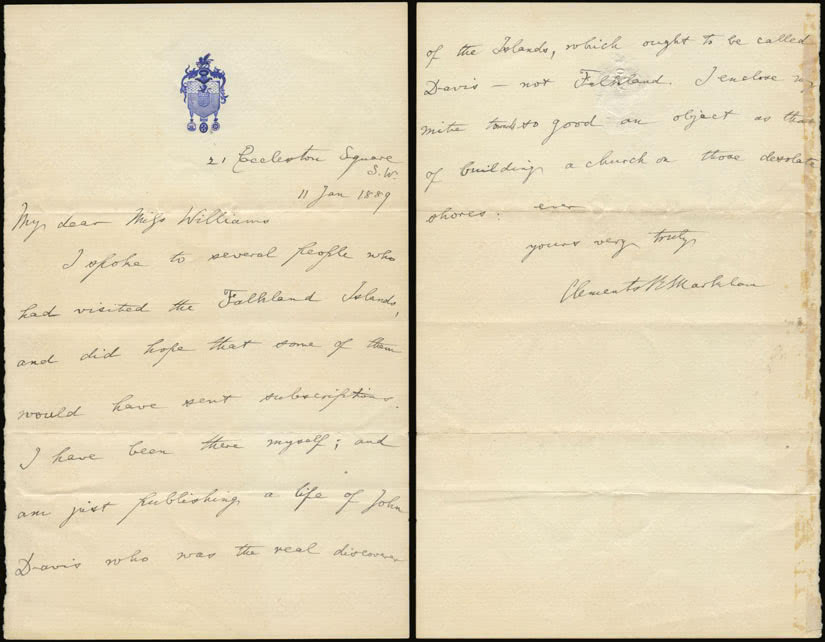 21 Eccleston Square
S.W.
11 Jan 1889
My dear Miss Williams
I spoke to several people who
had visited the Falkland Islands,
and did hope that some of them
would have sent subscriptions.
I have been there myself; and
am just publishing a life of John
Davis who was the real discoverer
of the Islands, which ought to be called
Davis — not Falkland. I enclose my
mite to so good an object as that
of building a church on those desolate
shores. ever
yours very truly
Clements R Markham